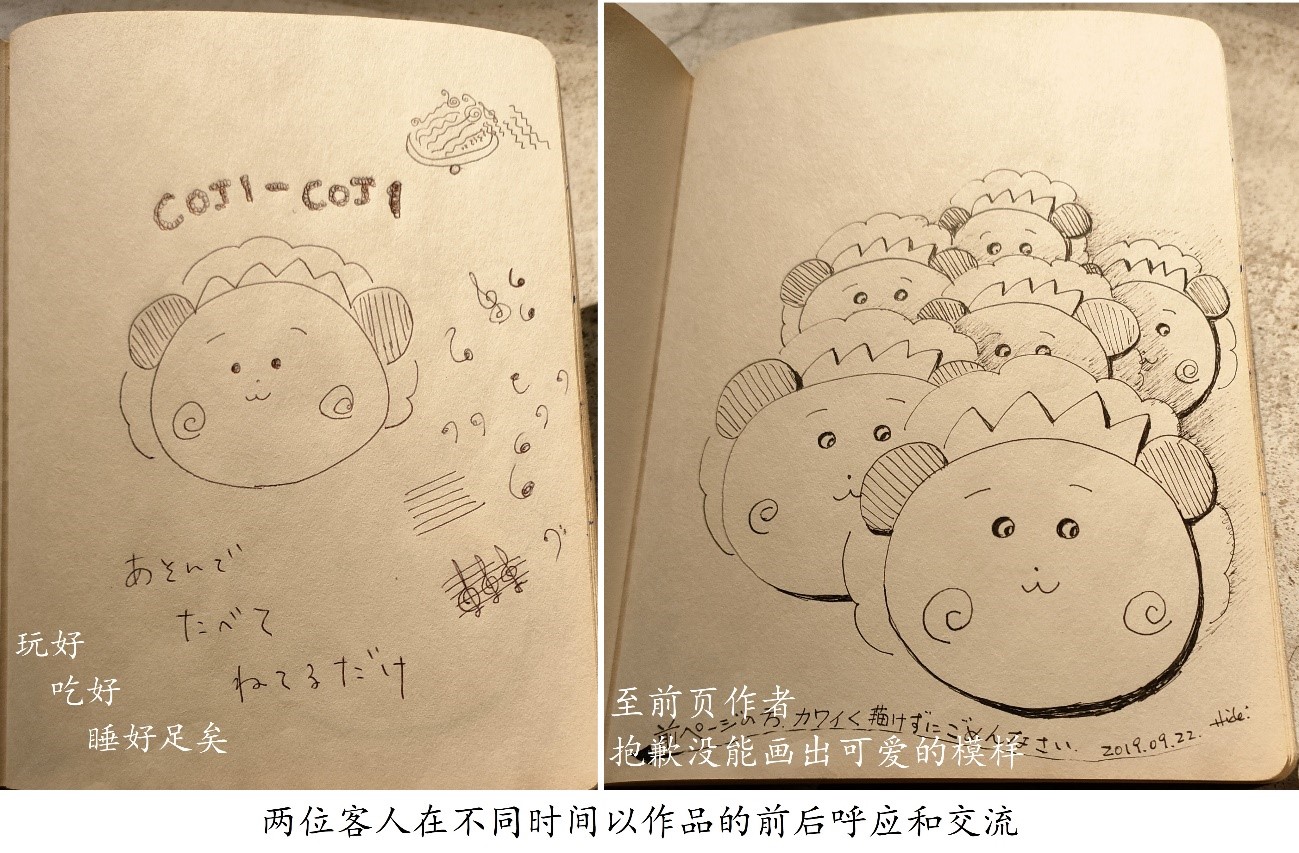 COJI-COJI
あそんで
たべて
ねてるだけ
玩好
吃好
睡好足矣
至前页作者
前ページの方、カワイく描けずにごめんなさい.
2019.09.22. Hide:
抱歉没能画出可爱的模样
两位客人在不同时间以作品的前后呼应和交流